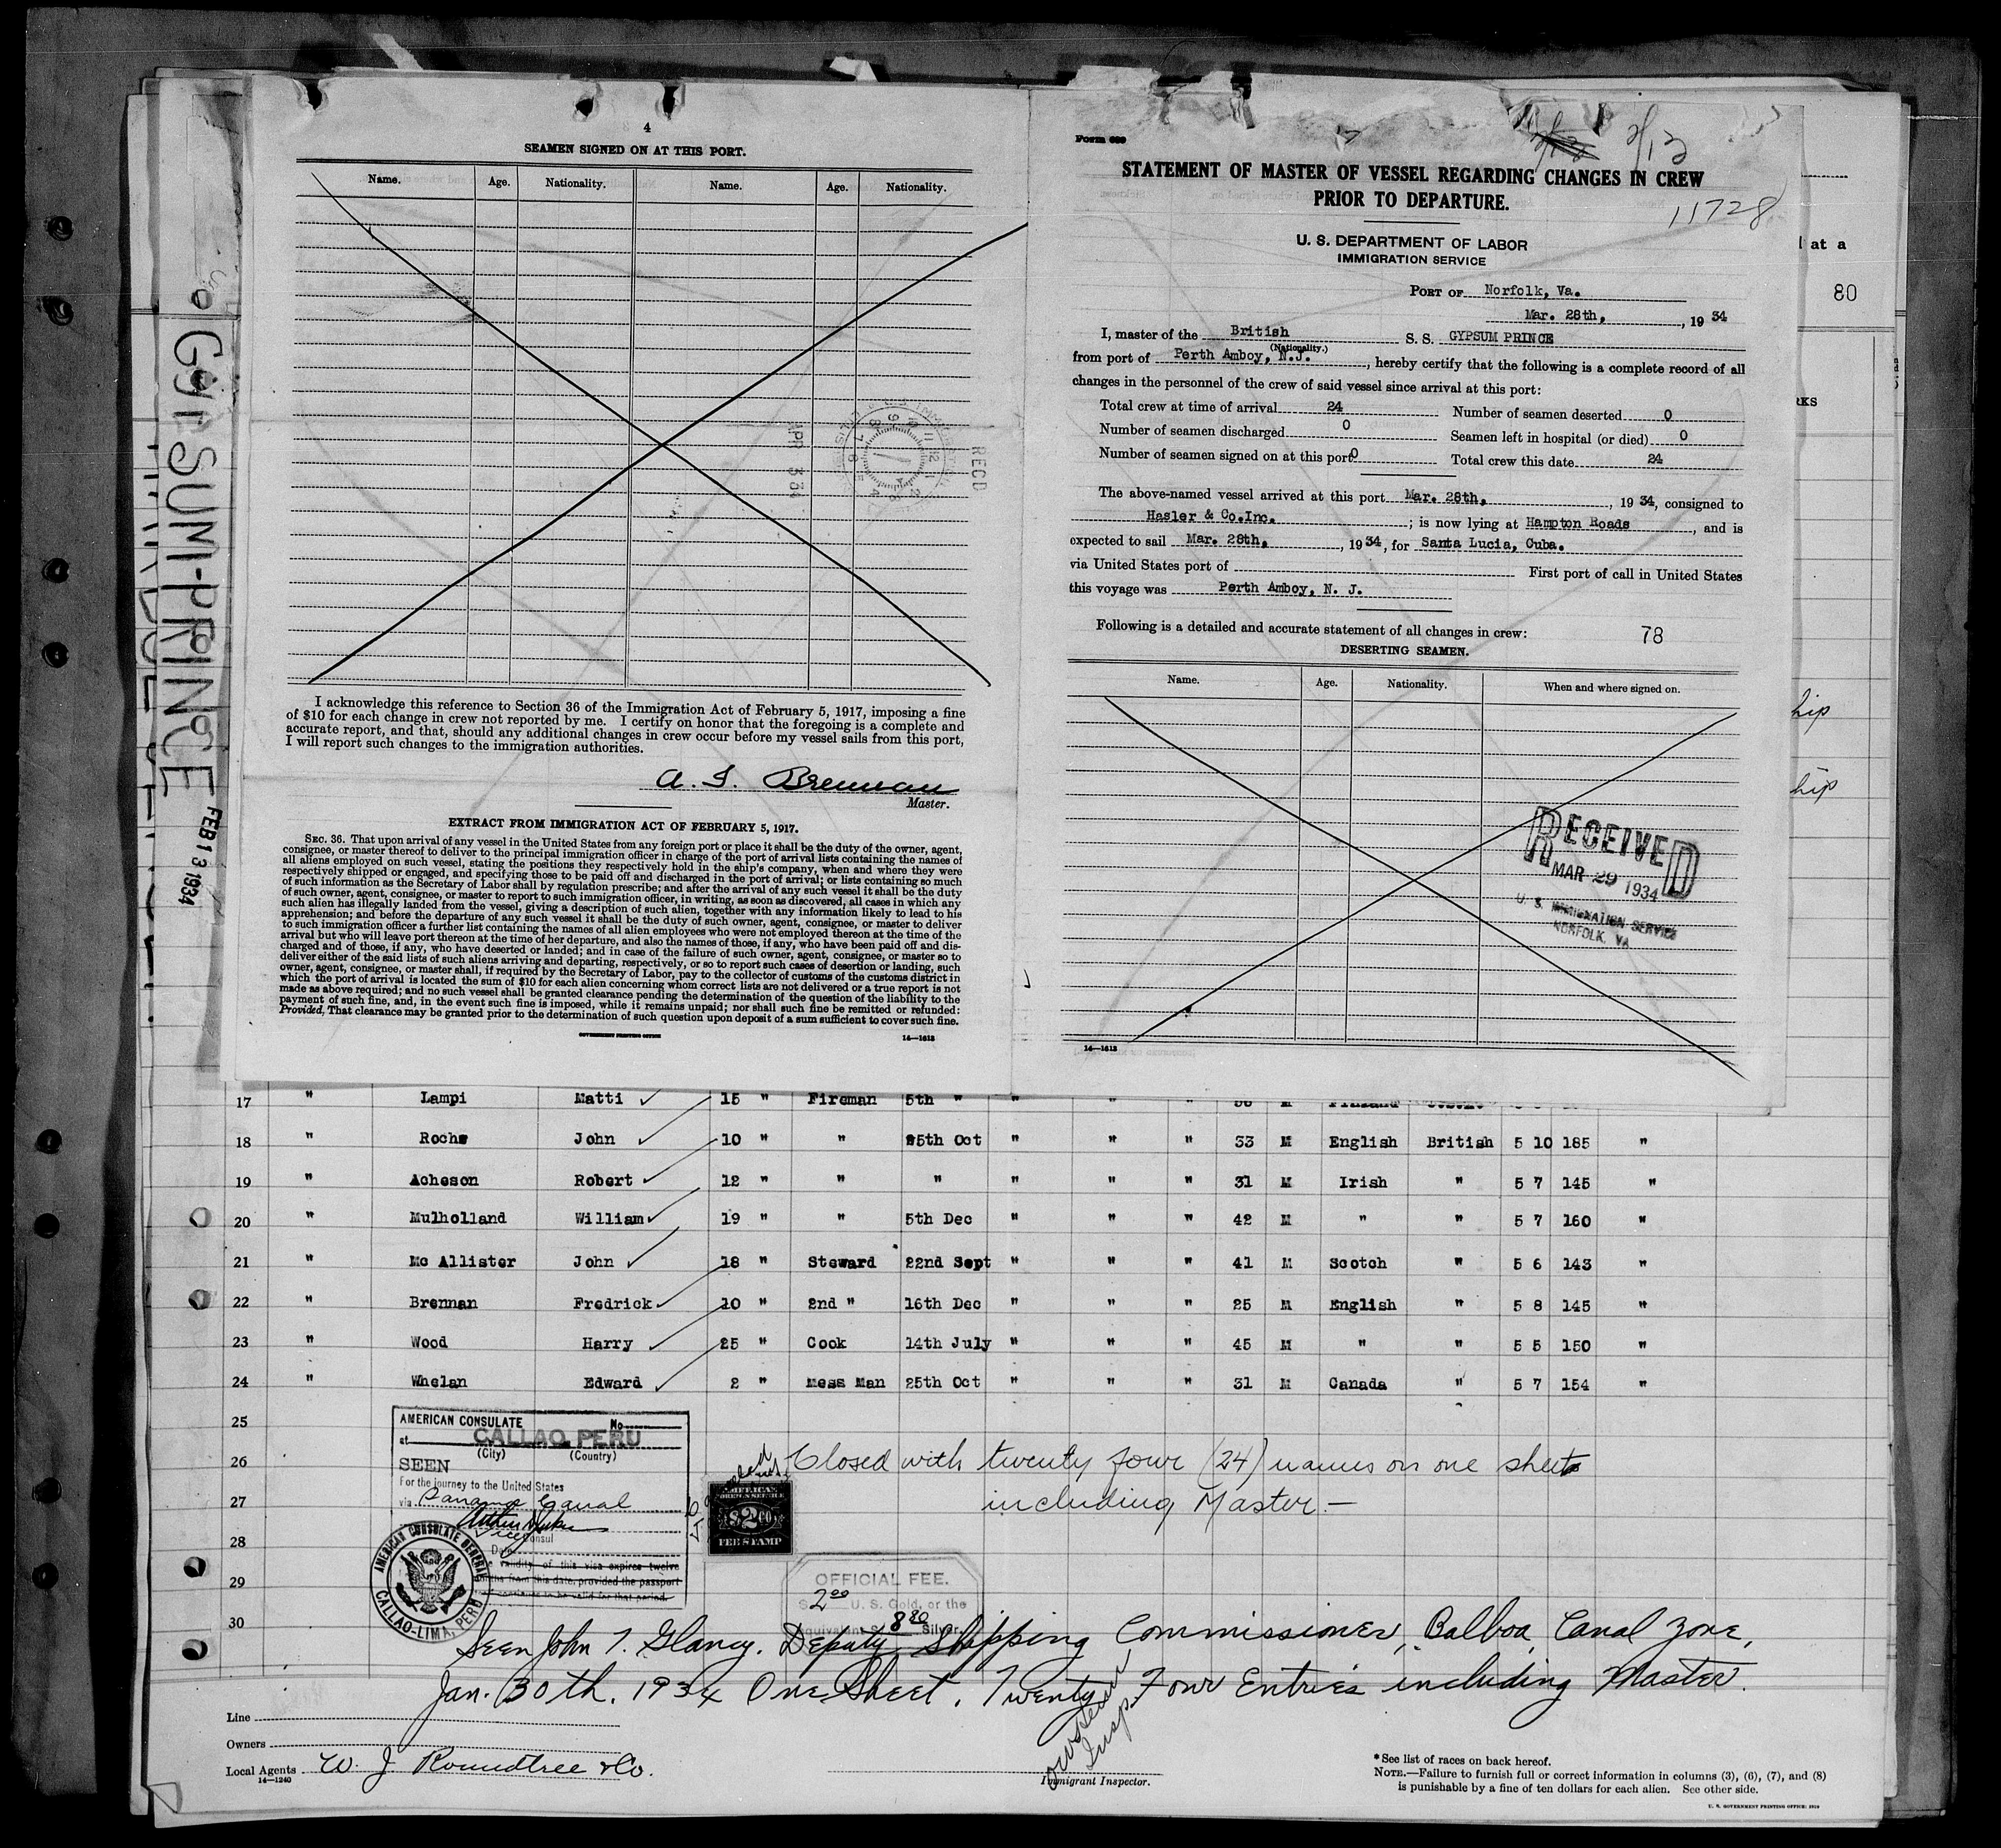 4
SEAMEN SIGNED ON AT THIS PORT.
Name. Age. Nationality. Name. Age. Nationality.
RECD
APR 3 34
I acknowledge this reference to Section 36 of the Immigration Act of February 5, 1917, imposing a fine
of $10 for each change in crew not reported by me. I certify on honor that the foregoing is a complete and
accurate report, and that, should any additional changes in crew occur before my vessel sails from this port,
I will report such changes to the immigration authorities.
Brennan
Master.
EXTRACT FROM IMMIGRATION ACT OF FEBRUARY 5, 1917.
SEC. 36. That upon arrival of any vessel in the United States from any foreign port or place it shall be the duty of the owner, agent,
consignee, or master thereof to deliver to the principal immigration officer in charge of the port of arrival lists containing the names of
all aliens employed on such vessel, stating the positions they respectively hold in the ship's company, when and where they were
respectively shipped or engaged, and specifying those to be paid off and discharged in the port of arrival; or lists containing so much
of such information as the Secretary of Labor shall by regulation prescribe; and after the arrival of any such vessel it shall be the duty
of such owner, agent, consignee, or master to report to such immigration officer, in writing, as soon as discovered, all cases in which any
such alien has illegally landed from the vessel, giving a description of such alien, together with any information likely to lead to his
apprehension; and before the departure of any such vessel it shall be the duty of such owner, agent, consignee, or master to deliver
to such immigration officer a further list containing the names of all alien employees who were not employed thereon at the time of the
arrival but who will leave port thereon at the time of her departure, and also the names of those, if any, who have been paid off and dis-
charged and of those, if any, who have deserted or landed; and in case of the failure of such owner, agent, consignee, or master so to
deliver either of the said lists of such aliens arriving and departing, respectively, or so to report such cases of desertion or landing, such
owner, agent, consignee, or master shall, if required by the Secretary of Labor, pay to the collector of customs of the customs district in
which the port of arrival is located the sum of $10 for each alien concerning whom correct lists are not delivered or a true report is not
made as above required; and no such vessel shall be granted clearance pending the determination of the question of the liability to the
payment of such fine, and, in the event such fine is imposed, while it remains unpaid; nor shall such fine be remitted or refunded:
Provided, That clearance may be granted prior to the determination of such question upon deposit of a sum sufficient to cover such fine.
GOVERNMENT PRINTING OFFICE 14—1613
GYPSUM-PRINCE
FEB 13 1934
Form 689
2/13
STATEMENT OF MASTER OF VESSEL REGARDING CHANGES IN CREW
PRIOR TO DEPARTURE.
11728
U. S. DEPARTMENT OF LABOR
IMMIGRATION SERVICE
PORT OF Norfolk, Va.
Mar. 28th, , 19 34
I, master of the British S. S. GYPSUM PRINCE
(Nationality.)
from port of Perth Amboy, N.J. , hereby certify that the following is a complete record of all
changes in the personnel of the crew of said vessel since arrival at this port:
Total crew at time of arrival 24 Number of seamen deserted 0
Number of seamen discharged 0 Seamen left in hospital (or died) 0
Number of seamen signed on at this port 0 Total crew this date 24
The above-named vessel arrived at this port Mar. 28th, , 19 34, consigned to
Hasler & Co.Inc. ; is now lying at Hampton Roads , and is
expected to sail Mar. 28th, , 19 34, for Santa Lucia, Cuba.
via United States port of First port of call in United States
this voyage was Perth Amboy, N. J.
Following is a detailed and accurate statement of all changes in crew: 78
DESERTING SEAMEN.
Name. Age. Nationality. When and where signed on.
RECEIVED
MAR 29 1934
U. S. IMMIGRATION SERVICE
NORFOLK, VA.
14—1613
at a
80
RKS
hip
hip
17 " Lampi Matti 15 " Fireman 5th " " " " M Finland
18 " John 10 " " 25th Oct " " " 33 M English British 5 10 185 "
19 " Acheson Robert 12 " " " " " " 31 M Irish " 5 7 145 "
20 " Mulholland William 19 " " 5th Dec " " " 42 M " " 5 7 160 "
21 " Mc Allister John 18 " Steward 22nd Sept " " " 41 M Scotch " 5 6 143 "
22 " Brennan Fredrick 10 " 2nd " 16th Dec " " " 25 M English " 5 8 145 "
23 " Wood Harry 25 " Cook 14th July " " " 45 M " " 5 5 150 "
24 " Whelan Edward 2 " Mess Man 25th Oct " " " 31 M Canada " 5 7 154 "
25
26
27
28
29
30
AMERICAN CONSULATE No.
at CALLAO, PERU
(City) (Country)
SEEN
For the journey to the United States
via Panama Canal
Vice Consul
Date
validity of this visa expires twelve
from this date, provided the passport
continues to be valid for that period.
AMERICAN CONSULATE GENERAL
CALLAO-LIMA, PERU
AMERICAN
FOREIGN SERVICE
$2.00
FEE STAMP
Closed with twenty four (24) names on one sheet
including Master.—
OFFICIAL FEE.
2.00 U. S. Gold, or the
equivalent 8.80 Silver.
Seen John T. Glancy. Deputy Shipping Commissioner, Balboa, Canal Zone,
Jan. 30th. 1934 One Sheet. Twenty Four Entries including Master.
Line
Owners
Local Agents W. J. Roundtree & Co.
14—1240
Insp.
Immigrant Inspector.
*See list of races on back hereof.
NOTE.—Failure to furnish full or correct information in columns (3), (6), (7), and (8)
is punishable by a fine of ten dollars for each alien. See other side.
U. S. GOVERNMENT PRINTING OFFICE: 1929